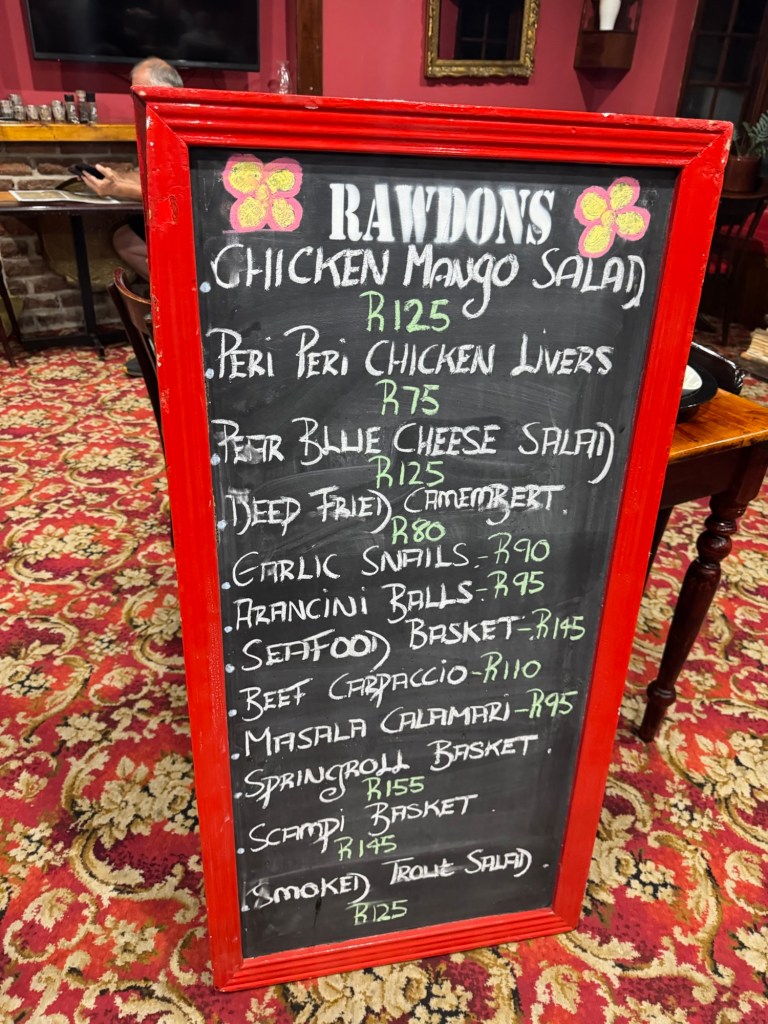 RAWDONS
.CHICKEN MANGO SALAD
R125
.PERI PERI CHICKEN LIVERS
R75
.PEAR BLUE CHEESE SALAD
R125
.DEEP FRIED CAMEMBERT.
R80
.GARLIC SNAILS.-R90
.ARANCINI BALLS-R95
.SEAFOOD BASKET-R145
.BEEF CARPACCIO-R110
.MASALA CALAMARI-R95
.SPRINGROLL BASKET.
R155
.SCAMPI BASKET.
R145
.SMOKED TROUT SALAD.
R125